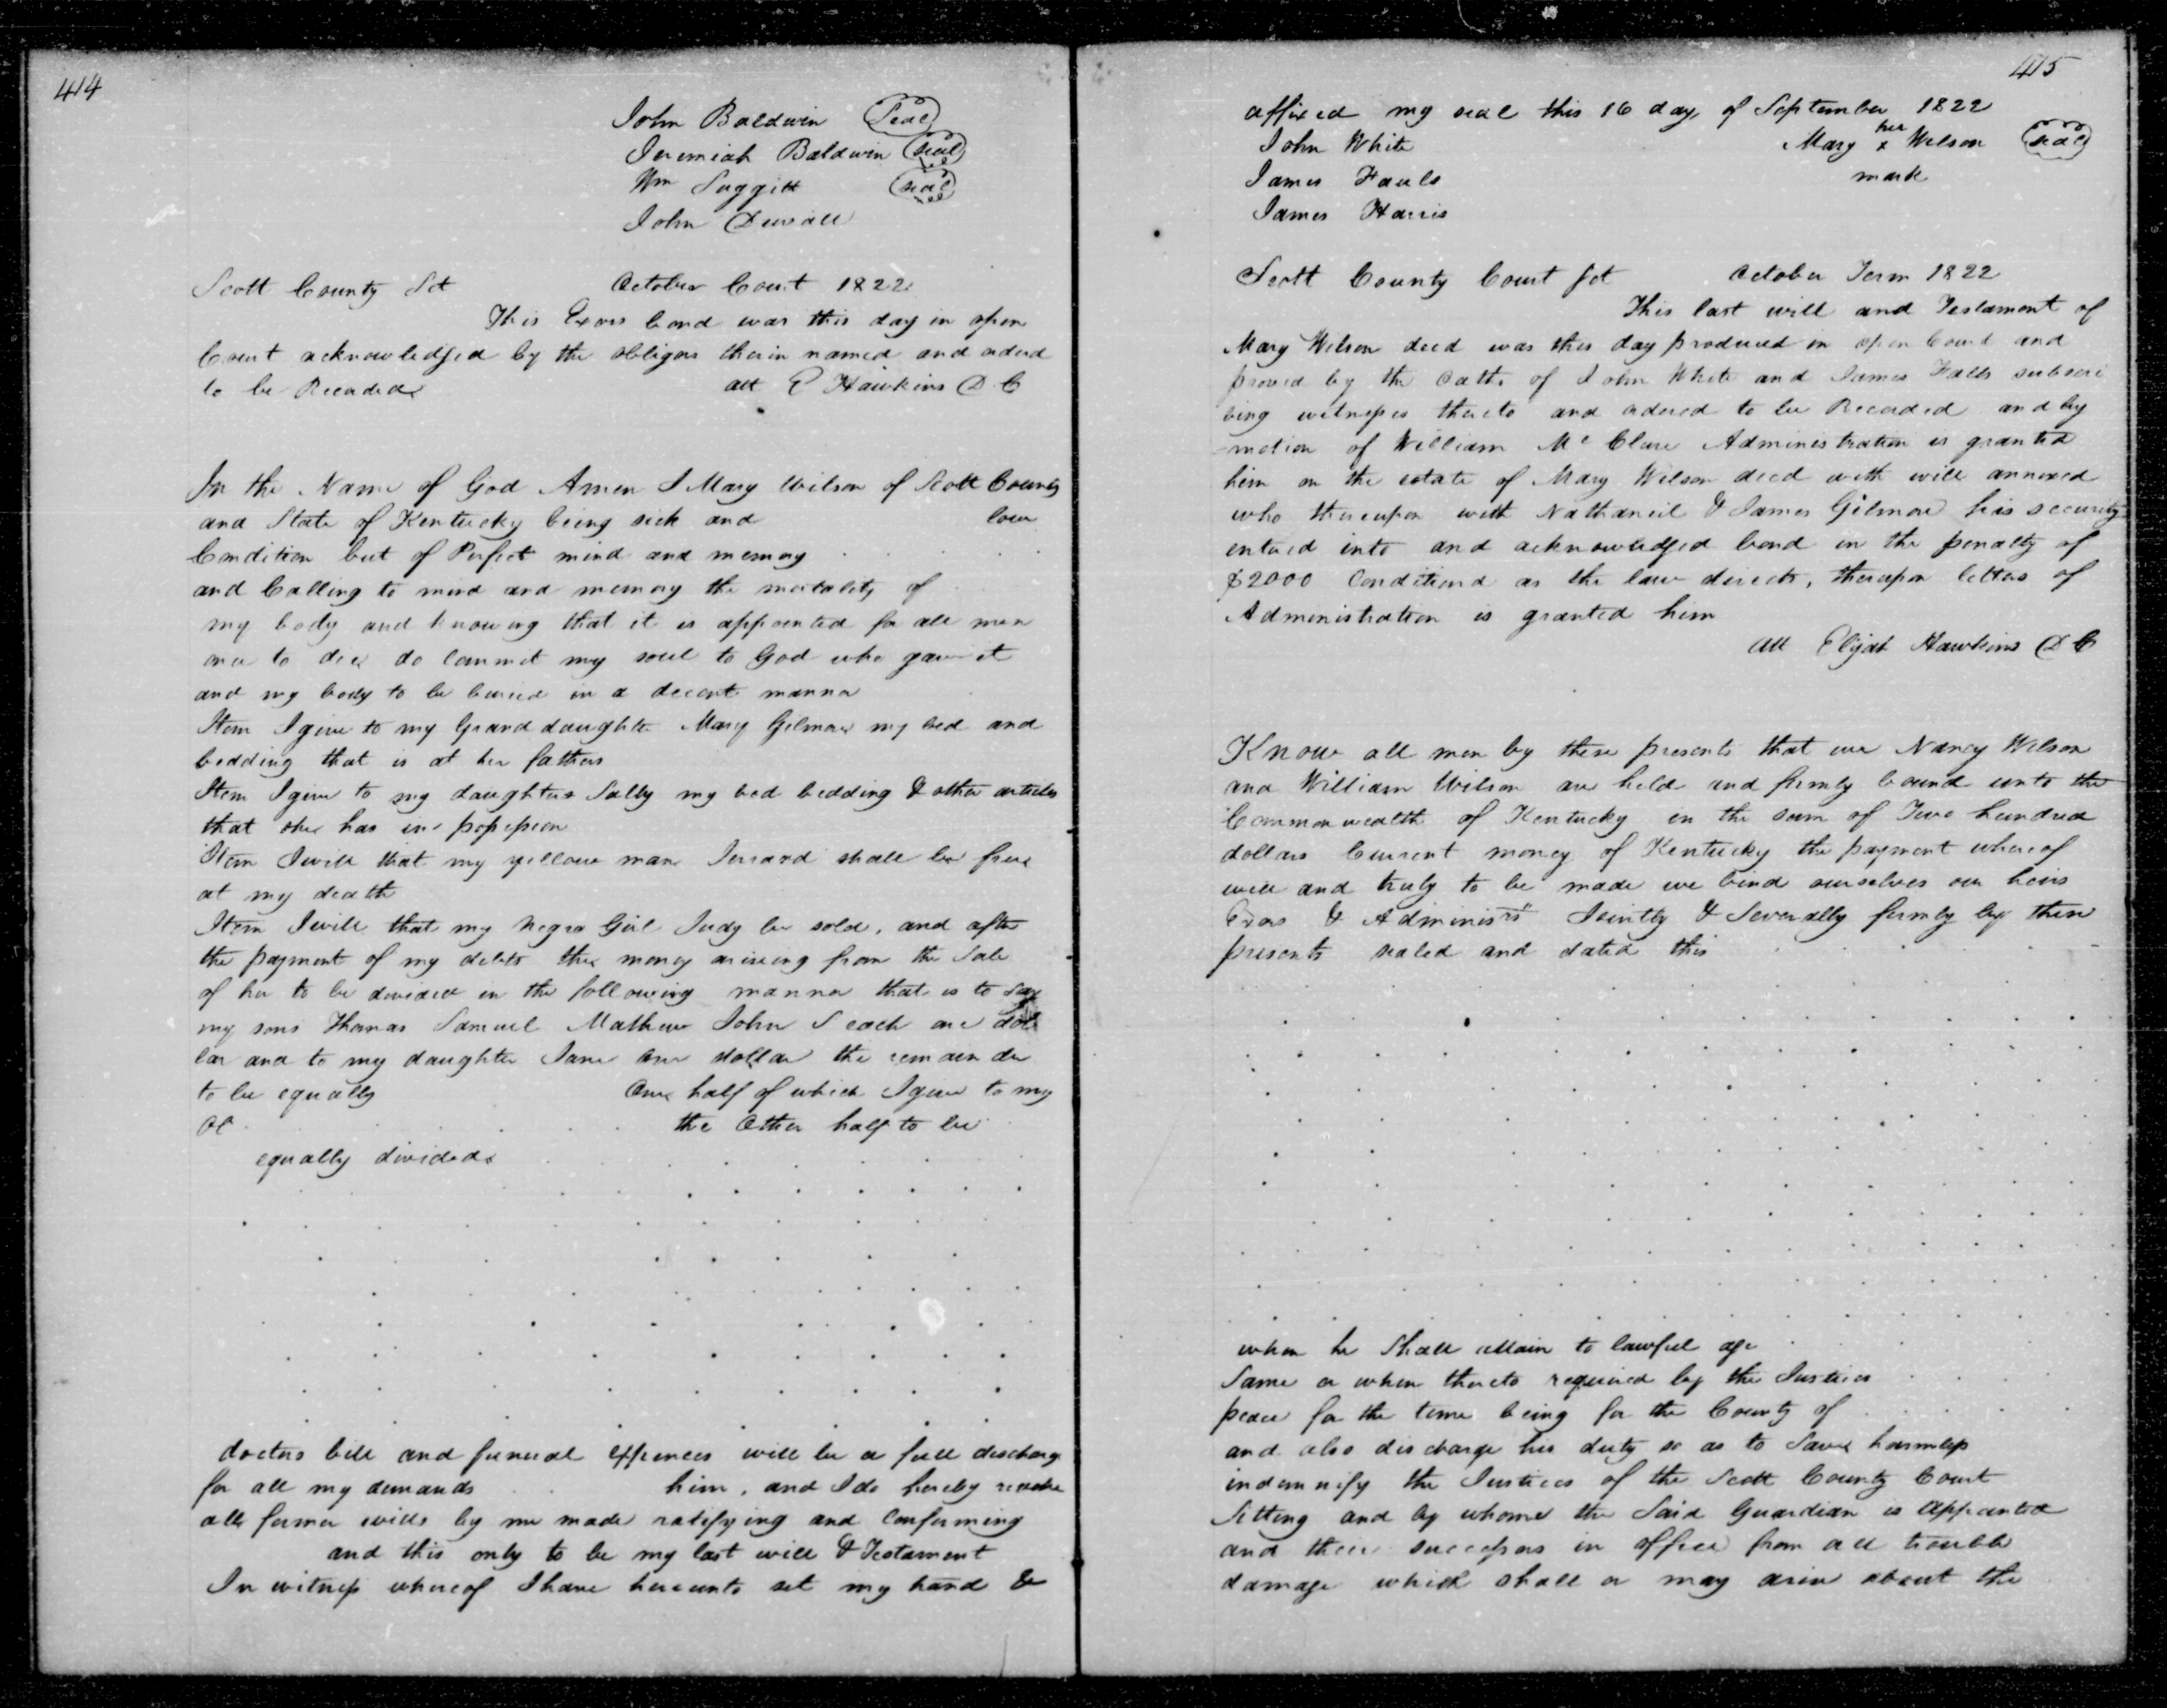 414
John Baldwin Seal
Jeremiah Baldwin Seal
Wm Suggitt Seal
John Duvall
Scott County Sct October Court 1822
This Exors bond was this day in open
Court acknowledged by the obligors therin named and orderd
to be Recorded att E Hawkins D C
In the Name of God Amen I Mary Wilson of Scott County
and State of Kentucky being sick and low
Condition but of Perfect mind and memory
and Calling to mind and memory the mortality of
my body and knowing that it is appointed for all men
once to die do commit my soul to God who gave it
and my body to be buried in a decent manner
Item I give to my Grand daughter Mary Gilmore my bed and
bedding that is at her fathers
Item I give to my daughter Sally my bed bedding & other articles
that she has in possession
Item I will that my yellow man Jerrard shall be free
at my death
Item I will that my negro Girl Judy be sold, and after
the payment of my debts the money ariseing from the Sale
of her to be divided in the following manner that is to say
my sons Thomas Samuel Mathew John S each one dol
lar and to my daughter Jane one dollar the remain der
to be equally One half of which I give to my
the Other half to be
equally divided
doctors bill and funeral expences will be a full discharge
for all my demands him, and I do hereby revoke
all former wills by me made ratifying and Conforming
and this only to be my last will & Testament
In witness whereof I have hereunto set my hand &
415
affixed my seal this 16 day of September 1822
John White Mary her x Wilson seal
James Fauls mark
James Harris
Scott County Court Sct October Term 1822
This last will and Testament of
Mary Wilson decd was this day produced in open Court and
proved by the Oaths of John White and James Falls subscri
bing witnesses thereto and ordered to be Recorded and by
motion of William Mc Clure Administration is granted
him on the estate of Mary Wilson decd with will annexed
who thereupon with Nathaniel & James Gilmore his security
entered into and acknowledged bond in the penalty of
$2000 Conditiond as the law directs, thereupon letters of
Administration is granted him
att Elijah Hawkins D C
Know all men by these presents that we Nancy Wilson
and William Wilson are held and firmly bound unto the
Commonwealth of Kentucky in the sum of Two hundred
dollars Current money of Kentucky the payment whereof
well and truly to be made we bind ourselves our heirs
Exors & Administrs Jointly & Severally firmly by these
presents sealed and dated this
when he Shall attain to lawful age
Same or when thereto required by the Justices
peace for the time being for the County of
and also discharge his duty so as to Save harmless
indemnify the Justices of the Scott County Court
Sitting and by whome the Said Guardian is appointed
and their successors in office from all trouble
damage which shall or may arise about the